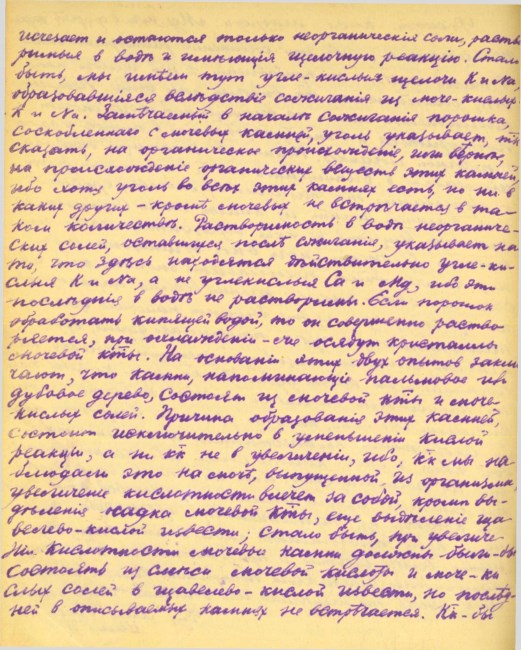 исчезает и остаются только неорганическiя соли, раство
римыя в водѣ и имеющiя щелочную реакцiю. Стало
быть, мы имѣем тут угле-кислыя щелочи K и Na,
образовавшiяся вслѣдствiе сожиганiя из моче-кислых
K и Na. Замѣчаемый в началѣ сожиганiя порошка,
соскобленнаго с мочевых камней, уголь указывает, так
сказать, на органическое происхожденiе, или вѣрнее,
на происхожденiе органических веществ этих камней,
ибо хотя уголь во всех этих камнях есть, но ни в
каких других - кромѣ мочевых не встрѣчается в та-
ком количествѣ. Растворимость в водѣ неорганиче-
ских солей, оставшихся послѣ сжиганiя, указывает на
то, что здѣсь находятся дѣйствительно угле-ки-
слыя K и Na, а не углекислыя Ca и Mg, ибо эти
послѣднiя в водѣ не растворимы. Если порошок
обработать кипящей водой, то он совершенно раство-
ряется, при охлажденiи - осядут кристаллы
мочевой к̃ты. На основанiи этих двух опытов заклю
чают, что камни, напоминающiе пальмовое
дубовое дерево, состоят из мочевой к̃ты и моче-
кислых солей. Причина образованiя этих камней,
состоит исключительно в уменьшенiи кислой
реакцiи, а ни к̃к не в увеличенiи, ибо, к̃к мы на-
блюдали это на мочѣ, выпущенной из организма,
увеличенiе кислотности влечет за собой, кромѣ вы-
дѣленiя осадка мочевой к̃ты, еще выдѣленiе ща-
велево-кислой извести; стало быть, при увеличе-
нiи кислотности мочевые камни должны были-бы
состоять из смеси мочевой кислоты и моче-ки
слых солей с щавелево-кислой извести, но послѣд-
ней в описываемых камнях не встрѣчается. К̃к-бы